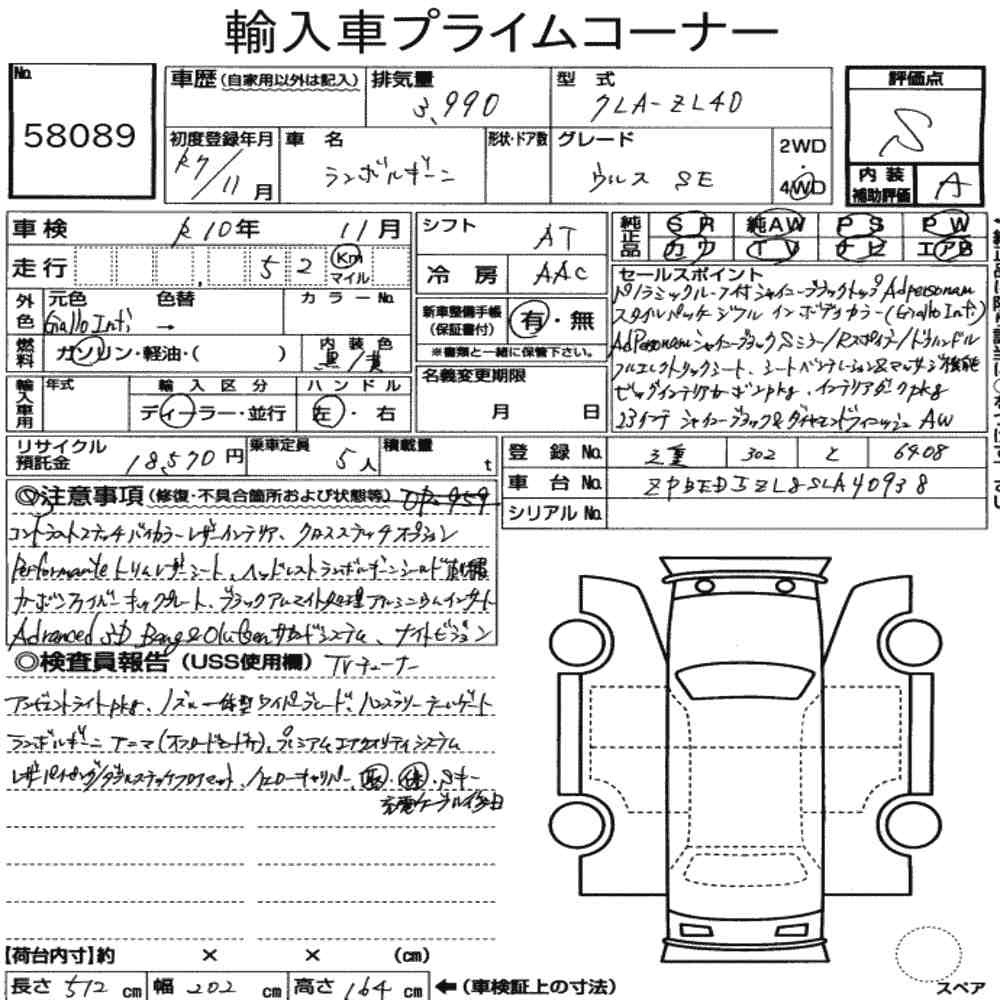 輸入車プライムコーナー
No.
58089
車歴(自家用以外は記入)
排気量
3,990
型 式
7LA-ZL4D
評価点
S
初度登録年月
R7/11月
車 名
ランボルギーニ
形状・ドア数
グレード
ウルス SE
2WD
・
4WD
内装
補助評価
A
車検 R10年 11月
シフト AT
純正品
SR 純AW PS PW
カワ TV ナビ エアB
走行 52 Km
マイル
冷房 AAC
セールスポイント
パノラミックルーフ付シャイニーブラックトップ Adpersonam
スタイルパッケージフル インボディカラー(Giallo Inti)
AdPersonamシャイニーブラックSミラー/Rスポイラー/ドアハンドル
フルエレクトリックシート、シートベンチレーション&マッサージ機能
ビッグインテリアカーボンpkg、インテリアダークpkg
23インチ シャイニーブラック&ダイヤモンドフィニッシュ AW
外色
元色 色替 カラーNo.
Giallo Inti →
新車整備手帳
(保証書付)
有・無
※書類と一緒に保管下さい。
燃料
ガソリン・軽油・( )
内装色
黒/黄
名義変更期限
月 日
輸入車用
年式
輸入区分
ディーラー・並行
ハンドル
左・右
リサイクル
預託金
18,570円
乗車定員
5人
積載量
t
登録No. 三重 302 と 6408
車台No. ZPBED5ZL8SLA40938
シリアルNo.
◎注意事項(修復・不具合箇所および状態等) OP=959
コントラストステッチバイカラーレザーインテリア、クロスステッチオプション
Performanteトリムレザーシート、ヘッドレストランボルギーニシールド刺繍
カーボンファイバーキックプレート、ブラックアルマイト処理アルミニウムインサート
Advanced 3D Bang&Olufsenサウンドシステム、ナイトビジョン
◎検査員報告(USS使用欄) TVチューナー
アンビエントライトpkg、ノズル一体型ワイパーブレード、ハンズフリーテールゲート
ランボルギーニ アニマ(オフロードモード付)、プレミアムエアクオリティシステム
レザーパイピング/ダブルステッチフロアマット、イエローキャリパー、取・保・Sキー
充電ケーブル後日
【荷台内寸】約 × × (cm)
長さ 512 cm 幅 202 cm 高さ 164 cm ←(車検証上の寸法)
スペア